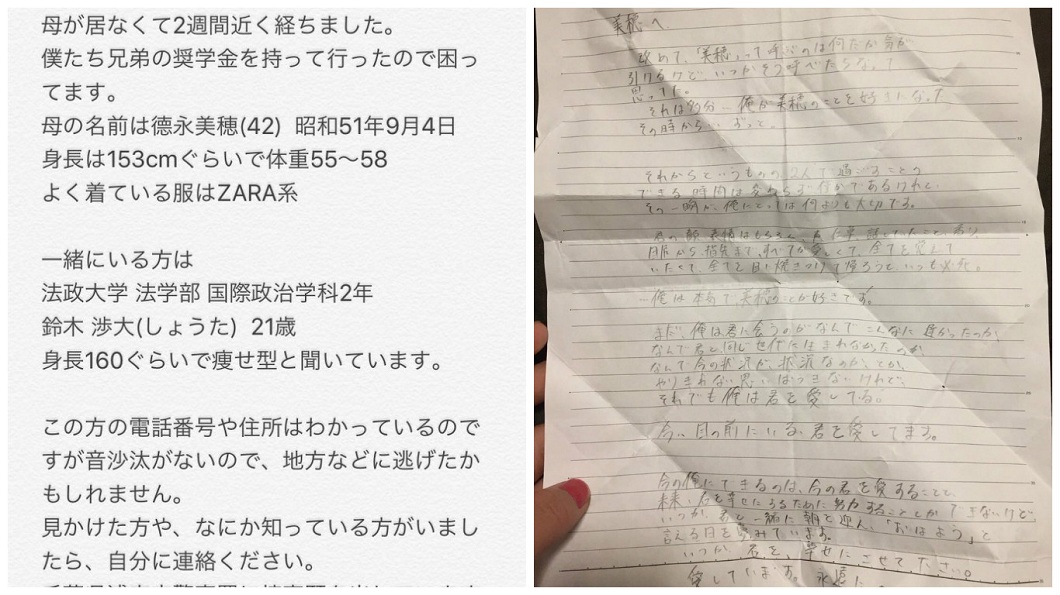 母が居なくて2週間近く経ちました。
僕たち兄弟の奨学金を持って行ったので困っ
てます。
母の名前は德永美穂(42) 昭和51年9月4日
身長は153cmぐらいで体重55〜58
よく着ている服はZARA系
一緒にいる方は
法政大学 法学部 国際政治学科2年
鈴木 渉大(しょうた) 21歳
身長160ぐらいで痩せ型と聞いています。
この方の電話番号や住所はわかっているので
すが音沙汰がないので、地方などに逃げたか
もしれません。
見かけた方や、なにか知っている方がいまし
たら、自分に連絡ください。
美穂へ
改めて、"美穂"って呼ぶのは何だか気が
引けるけど、いつかそう呼べたらなって
思ってた。
それは多分…俺が美穂のことを好きになった
その時から… ずっと。
それからというもの 2人で過ごすことの
できる時間は 僅かであるけれど、
その一瞬が、俺にとっては何よりも大切です。
すべてが愛しくて、全てを愛して
いたくて、全てを目に焼きつけて帰ろうと、いつも必死。
…俺は本気で、美穂のことが好きです。
まだ、俺は君に会うのがなんでこんなに遅かったのか、
なんで君と同じ世代に生まれなかったのか
なんで今の状況が、状況なのか、とか、
やりきれない思いはつきないけれど、
それでも俺は君を愛してる。
今、目の前にいる、君を愛してます。
今の俺にできるのは、今の君を愛することと、
未来、君を幸せにするために努力することしかできないけど、
いつか、君と一緒に朝を迎え、「おはよう」と
言える日を夢みています。
いつか、君を、幸せにさせてください。
愛しています。永遠に